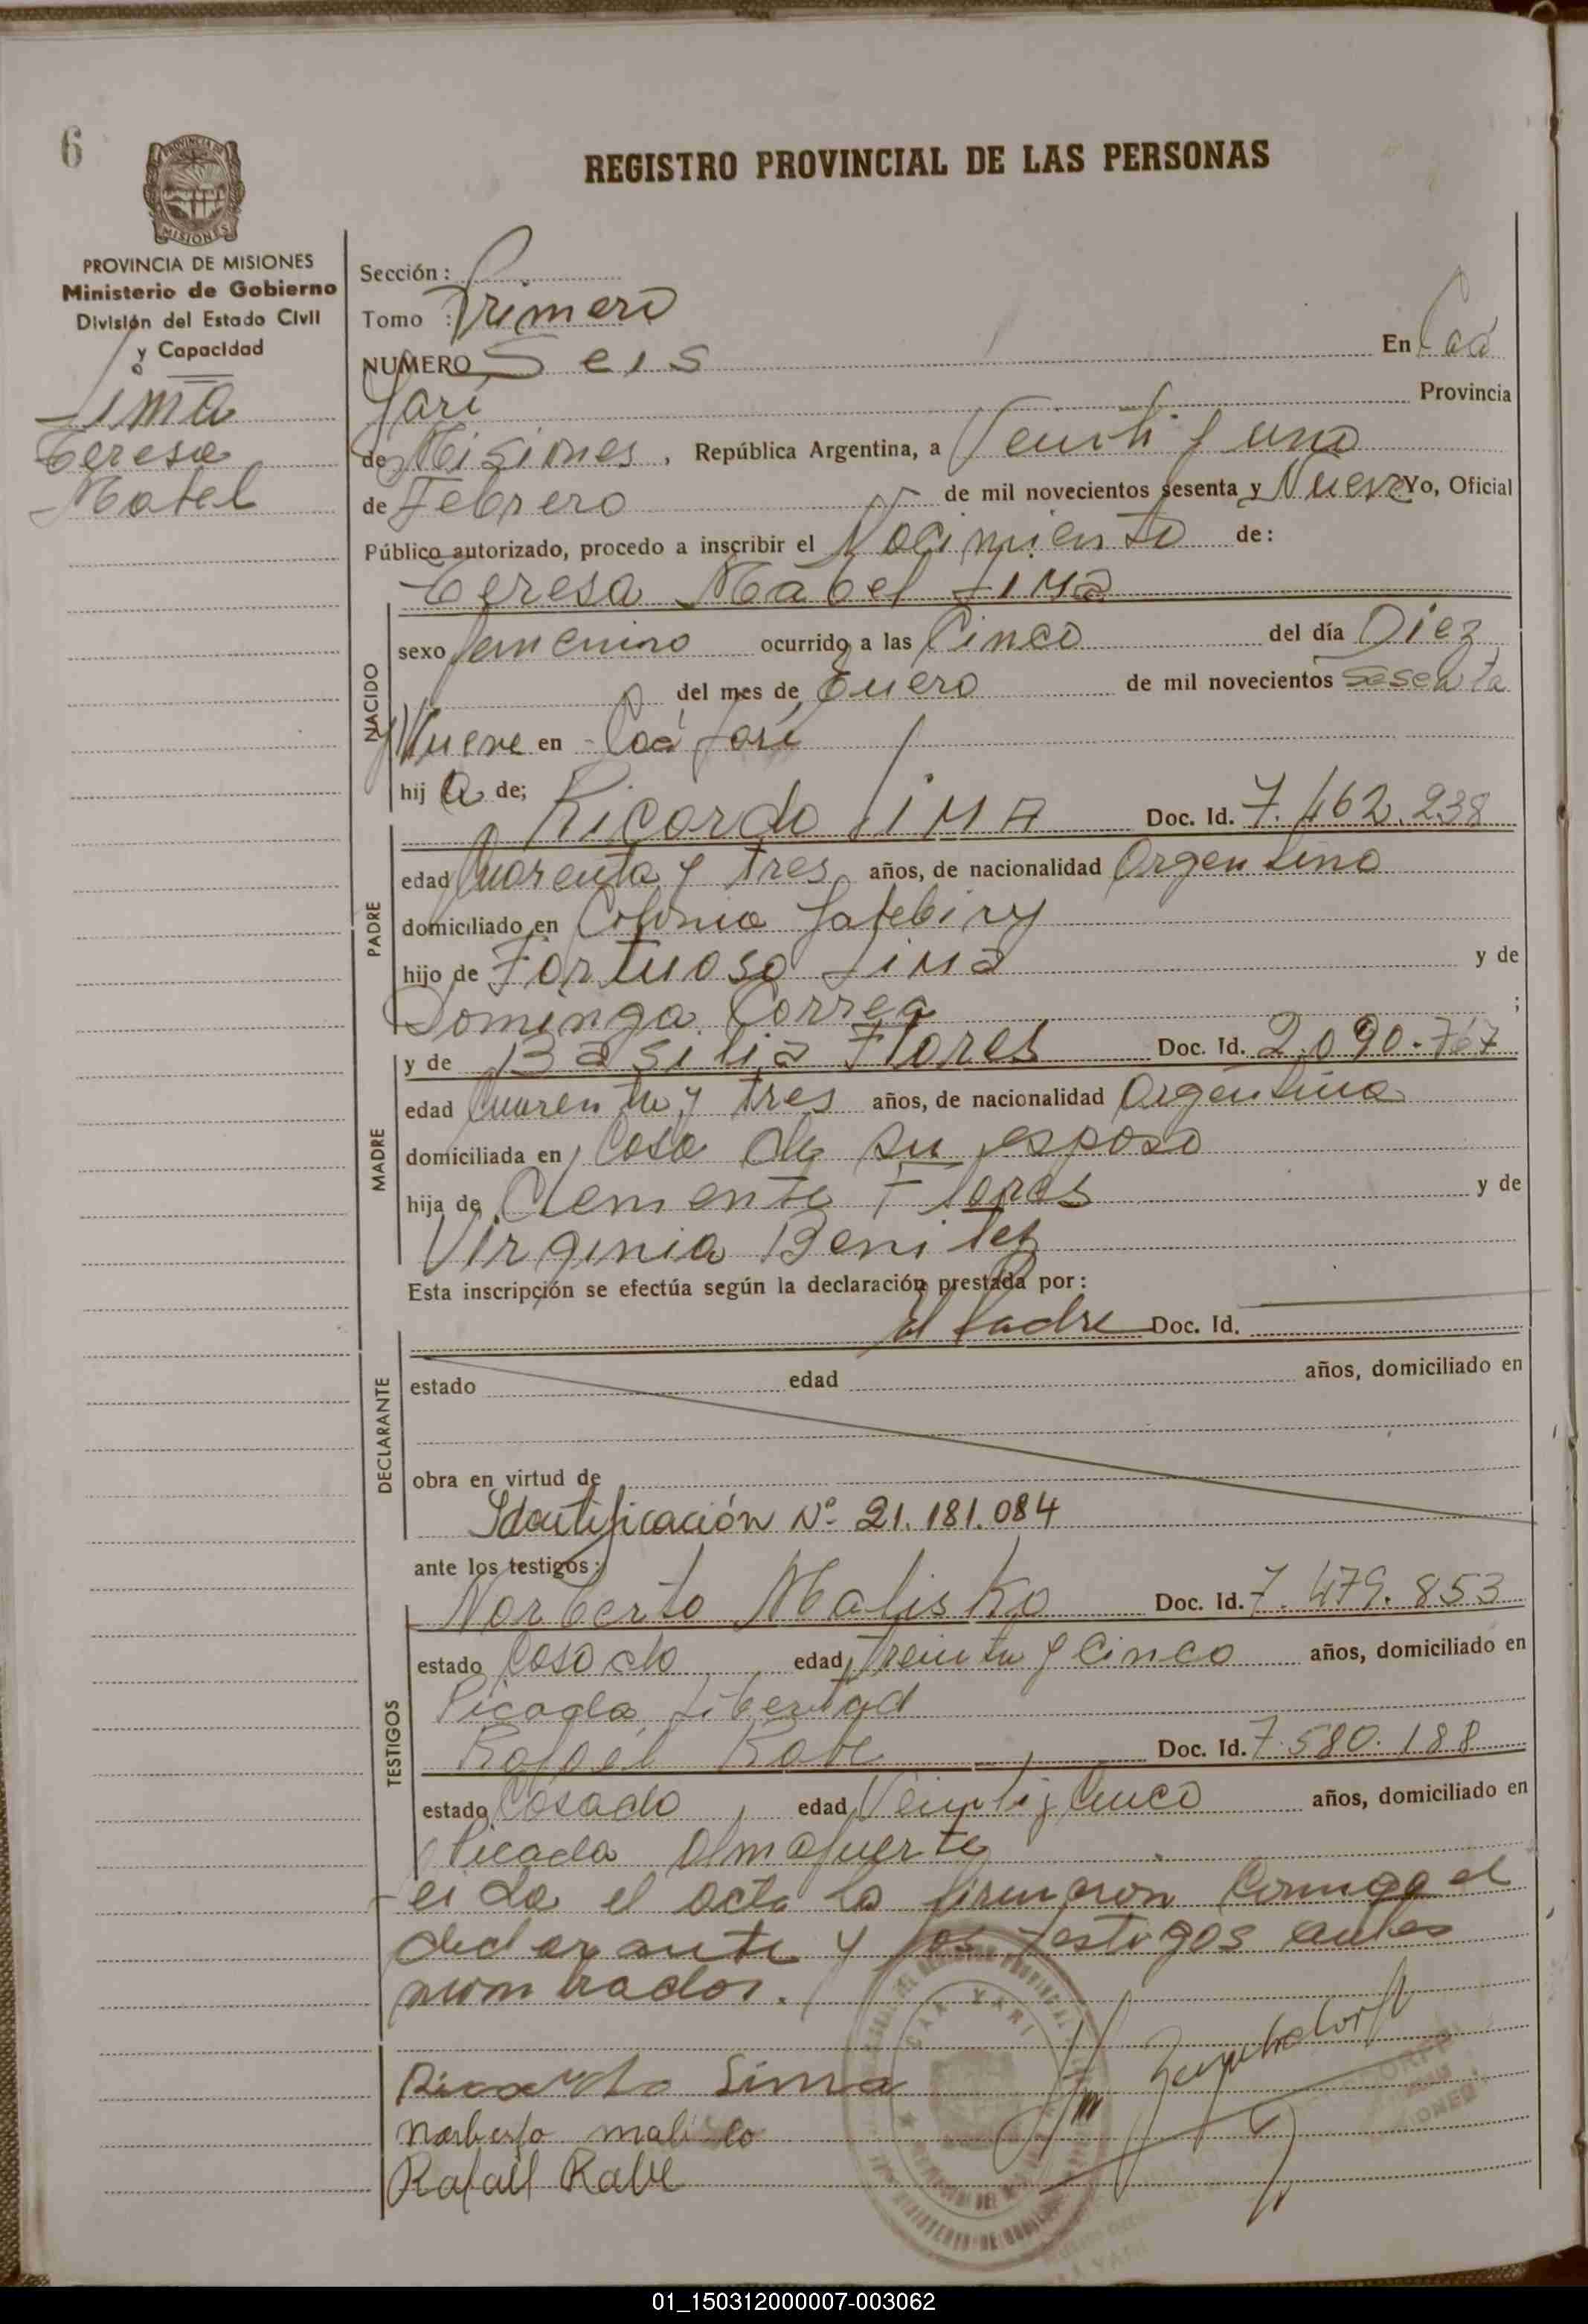 6
PROVINCIA DE
MISIONES
REGISTRO PROVINCIAL DE LAS PERSONAS
PROVINCIA DE MISIONES
Ministerio de Gobierno
División del Estado Civil
y Capacidad
Lima
Teresa
Mabel
Sección:
Tomo : Primero
NUMERO Seis En Caá
Yarí Provincia
de Misiones, República Argentina, a Veinti y uno
de Febrero de mil novecientos sesenta y Nueve Yo, Oficial
Público autorizado, procedo a inscribir el Nacimiento de:
Teresa Mabel Lima
NACIDO
sexo femenino ocurrido a las Cinco del día Diez
del mes de Enero de mil novecientos sesenta
y Nueve en Caá Yarí
hij a de;
Ricardo Lima Doc. Id. 7.462.238
PADRE
edad Cuarenta y tres años, de nacionalidad Argentino
domiciliado en Colonia
hijo de Fortuoso Lima y de
Dominga Correa ;
y de Basilia Flores Doc. Id. 2.090.767
MADRE
edad Cuarenta y tres años, de nacionalidad Argentina
domiciliada en Casa de su esposo
hija de Clemente Flores y de
Virginia Benitez
Esta inscripción se efectúa según la declaración prestada por:
el Padre Doc. Id.
DECLARANTE
estado edad años, domiciliado en
obra en virtud de
Identificación Nº 21.181.084
ante los testigos:
Norberto Malisko Doc. Id. 7.479.853
TESTIGOS
estado Casado edad Treinta y Cinco años, domiciliado en
Picada Libertad
Rafael Rabe Doc. Id. 7.580.188
estado Casado, edad Veinti y Cinco años, domiciliado en
Picada Almafuerte
Leida el acta la firmaron Conmigo el
declarante y los testigos antes
nombrados.
CAA YARI
Ricardo Lima
Norberto malisko
Rafael Rabe
01_150312000007-003062